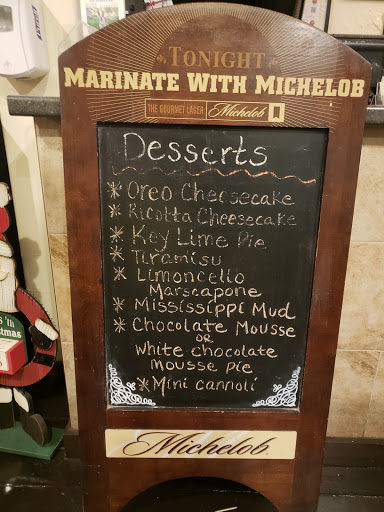 TONIGHT
MARINATE WITH MICHELOB
THE GOURMET LAGER Michelob
Desserts
* Oreo Cheesecake
* Ricotta Cheesecake
* Key Lime Pie
* Tiramisu
* Limoncello
Marscapone
* Mississippi Mud
* Chocolate Mousse
OR
White Chocolate
Mousse Pie
* Mini Cannoli
Michelob.